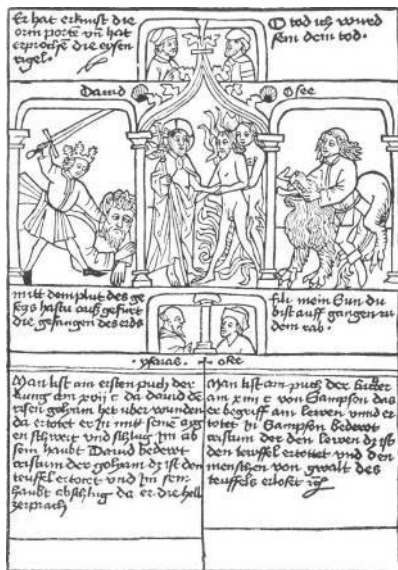 Er hat erknust die
erin porte vn hat
erproche die eysen
rigel.
O tod ich wurd
sein dein tod.
Dauid
Osee
mitt dem plut des ge
hastu auß gefurt
die gefangen des erds
fili mein Sun du
bist auff gangen zu
dem rab.
ysaias
Man list am ersten puch der
kung am xvij c da dauid de
risen goliam het uber wunden
da ertotet er in mitt seine aig
en schwert und schlug im ab
sein haubt Dauid bedewt
cristum der goliam dz ist den
teufel ertott und im sein
haubt abschlug da er die hell
zerprach
Man list am puch der
am xiiij c von Sampson das
er begriff ain lewen vnnd er
totet in Sampson bedewt
cristum der den lewen dz ist
den tewffel ertottet vnd den
menschen von gwalt des
teuffels erloset